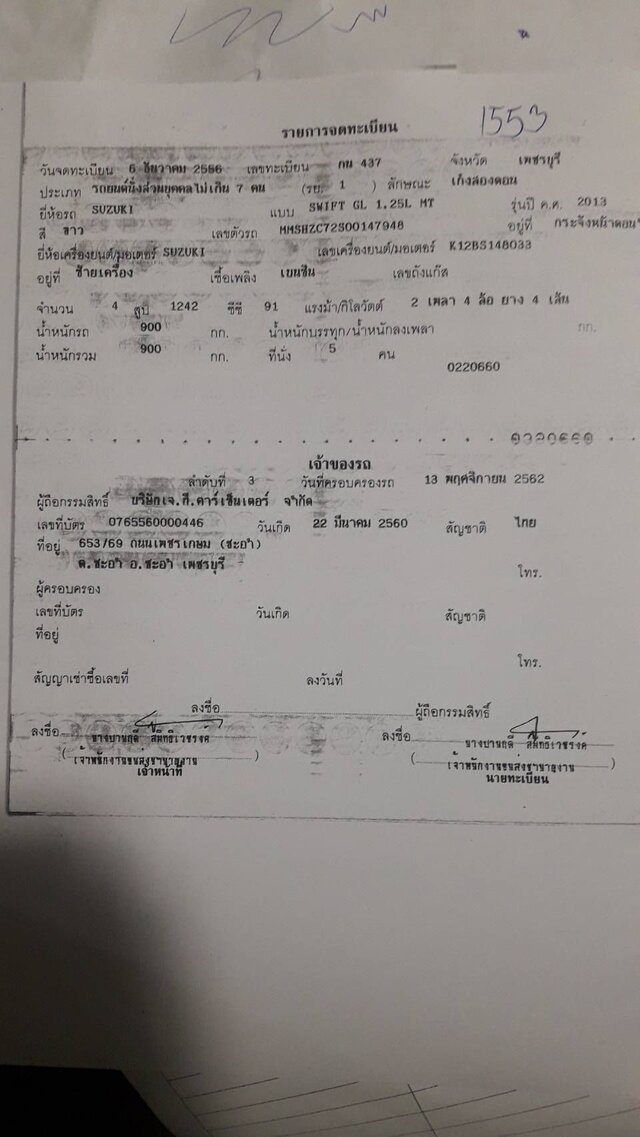 1553
รายการจดทะเบียน
วันจดทะเบียน 6 ธันวาคม 2556 เลขทะเบียน กน 437 จังหวัด เพชรบุรี
ประเภท รถยนต์นั่งส่วนบุคคลไม่เกิน 7 คน (รย. 1 ) ลักษณะ เก๋งสองตอน
ยี่ห้อรถ SUZUKI แบบ SWIFT GL 1.25L MT รุ่นปี ค.ศ. 2013
สี ขาว เลขตัวรถ MMSHZC72S00147948 อยู่ที่ กระจังหน้าตอน
ยี่ห้อเครื่องยนต์/มอเตอร์ SUZUKI เลขเครื่องยนต์/มอเตอร์ K12BS148033
อยู่ที่ ซ้ายเครื่อง เชื้อเพลิง เบนซิน เลขถังแก๊ส
จำนวน 4 สูบ 1242 ซีซี 91 แรงม้า/กิโลวัตต์ 2 เพลา 4 ล้อ ยาง 4 เส้น
น้ำหนักรถ 900 กก. น้ำหนักบรรทุก/น้ำหนักลงเพลา กก.
น้ำหนักรวม 900 กก. ที่นั่ง 5 คน
0220660
เจ้าของรถ
ลำดับที่ 3 วันที่ครอบครองรถ 13 พฤศจิกายน 2562
ผู้ถือกรรมสิทธิ์ บริษัทเจ.ที.คาร์เซ็นเตอร์ จำกัด
เลขที่บัตร 0765560000446 วันเกิด 22 มีนาคม 2560 สัญชาติ ไทย
ที่อยู่ 653/69 ถนนเพชรเกษม (ชะอำ)
ต.ชะอำ อ.ชะอำ เพชรบุรี
โทร.
ผู้ครอบครอง
เลขที่บัตร วันเกิด สัญชาติ
ที่อยู่
โทร.
สัญญาเช่าซื้อเลขที่ ลงวันที่
ลงชื่อ ผู้ถือกรรมสิทธิ์
ลงชื่อ ลงชื่อ
(เจ้าพนักงานขนส่งชำนาญงาน) (เจ้าพนักงานขนส่งชำนาญงาน)
เจ้าหน้าที่ นายทะเบียน